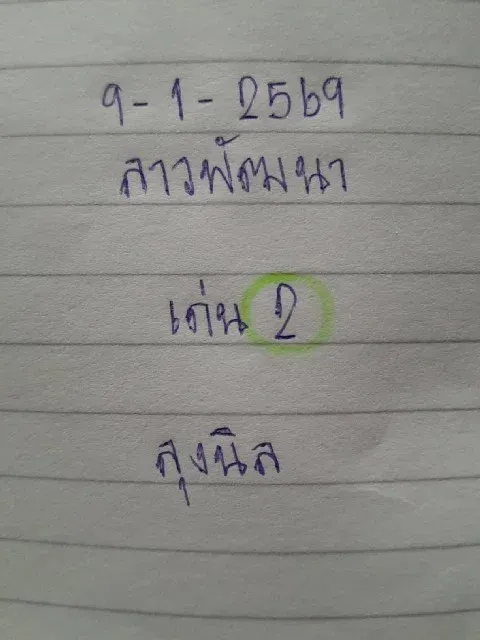 9-1-2569
ลาวพัฒนา
เด่น 2
ลุงนิล